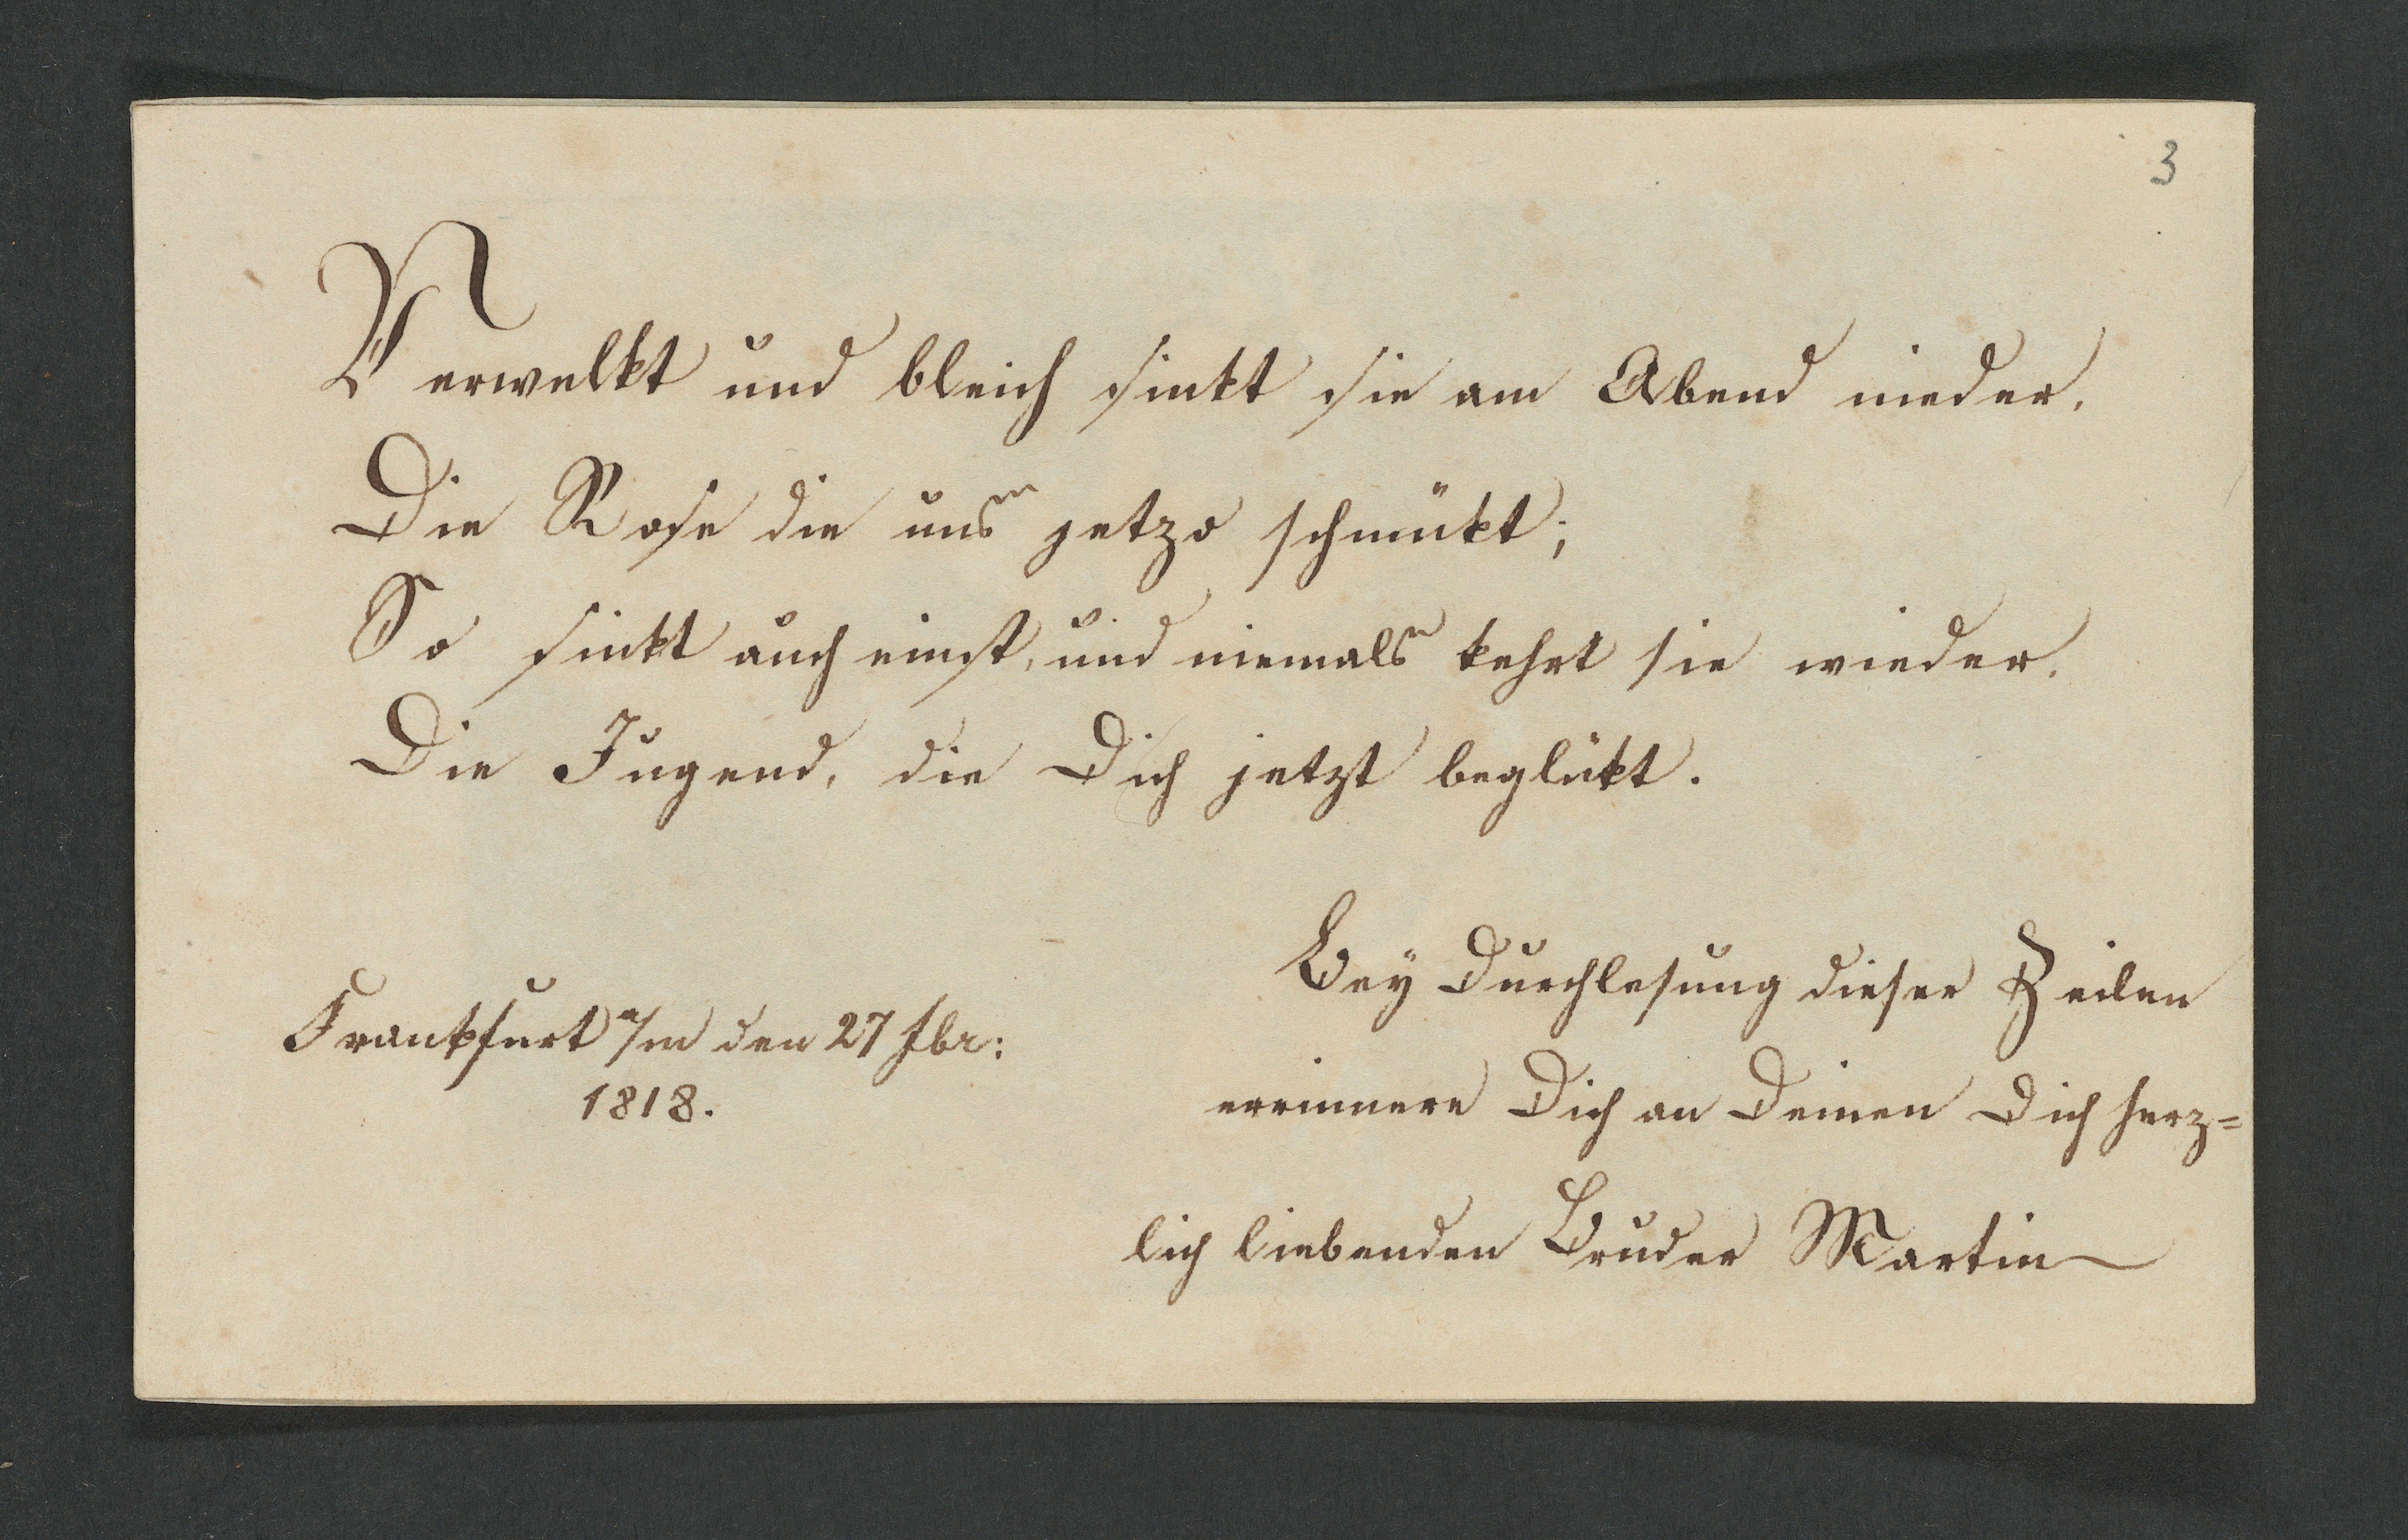 3
Verwelkt und bleich sinkt sie am Abend nieder,
Die Rose die uns jetzo schmükt;
So sinkt auch einst, und niemals kehrt sie wieder,
Die Jugend, die Dich jetzt beglükt.
Frankfurt a/m den 27 Jbr:
1818.
Bey Durchlesung dieser Zeilen
erinnere Dich an Deinen Dich herz=
lich liebenden Bruder Martin